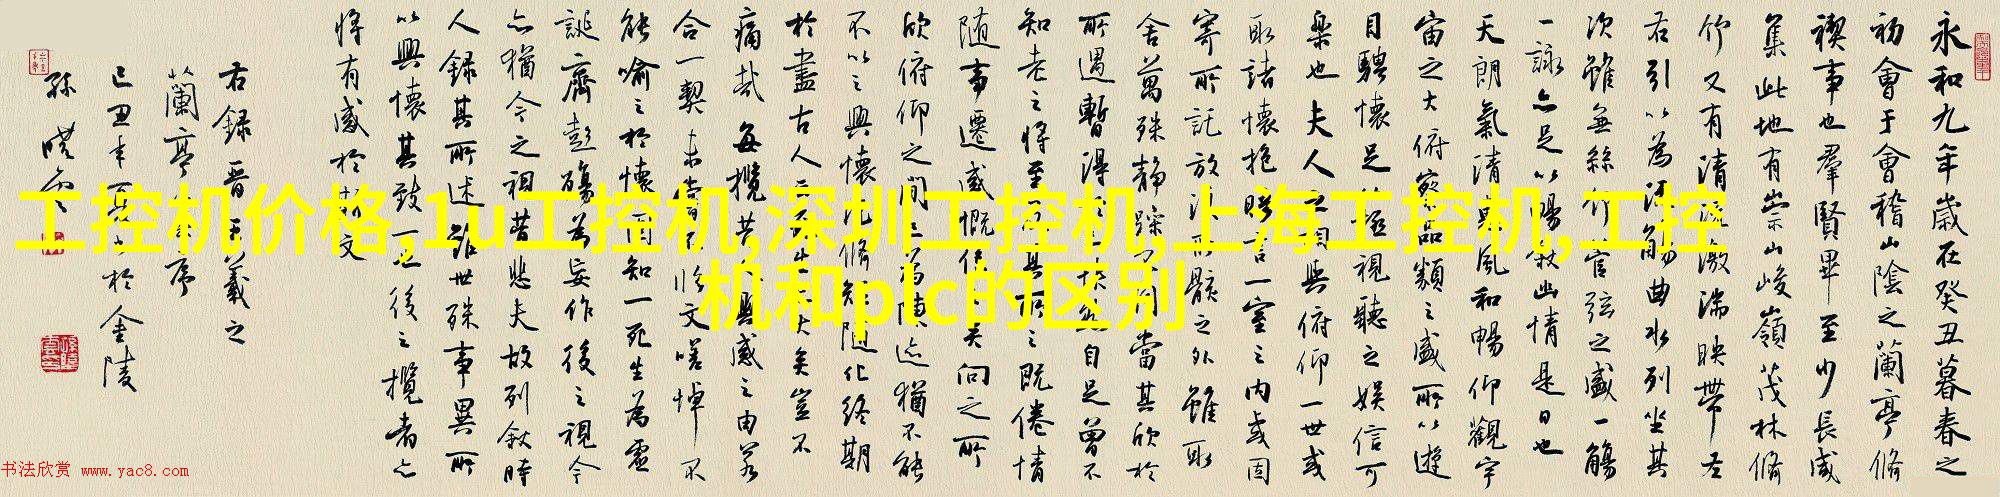 永和九年歲在癸丑暮春之
初會于會稽山陰之蘭亭脩
禊事也羣賢畢至少長咸
集此地有崇山峻嶺茂林脩
竹又有清流激湍映帶左
右引以為流觴曲水列坐其
次雖無絲竹管弦之盛一觴
一詠亦足以暢敘幽情是日也
天朗氣清惠風和暢仰觀宇
宙之大俯察品類之盛所以遊
目騁懷足以極視聽之娛信可
樂也夫人之相與俯仰一世或
取諸懷抱晤言一室之內或因
寄所託放浪形骸之外雖取
舍萬殊靜躁不同當其欣於
所遇暫得於己快然自足曾不
知老之將至及其所之既倦情
隨事遷感慨係之矣向之所
欣俯仰之間已為陳迹猶不能
不以之興懷況脩短隨化終期
於盡古人云死生亦大矣豈不
痛哉每攬昔人興感之由若
合一契未嘗不臨文嗟悼不
能喻之於懷固知一死生為虛
誕齊彭殤為妄作後之視今
亦猶今之視昔悲夫故列敘時
人錄其所述雖世殊事異所
以興懷其致一也後之攬者亦
將有感於斯文
右錄晉王羲之
蘭亭序
己丑年夏於金陵
孫曉雲
工控机价格,1u工控机,深圳工控机,上海工控机,工控
机和plc的区别
书法欣赏 www.yac8.com